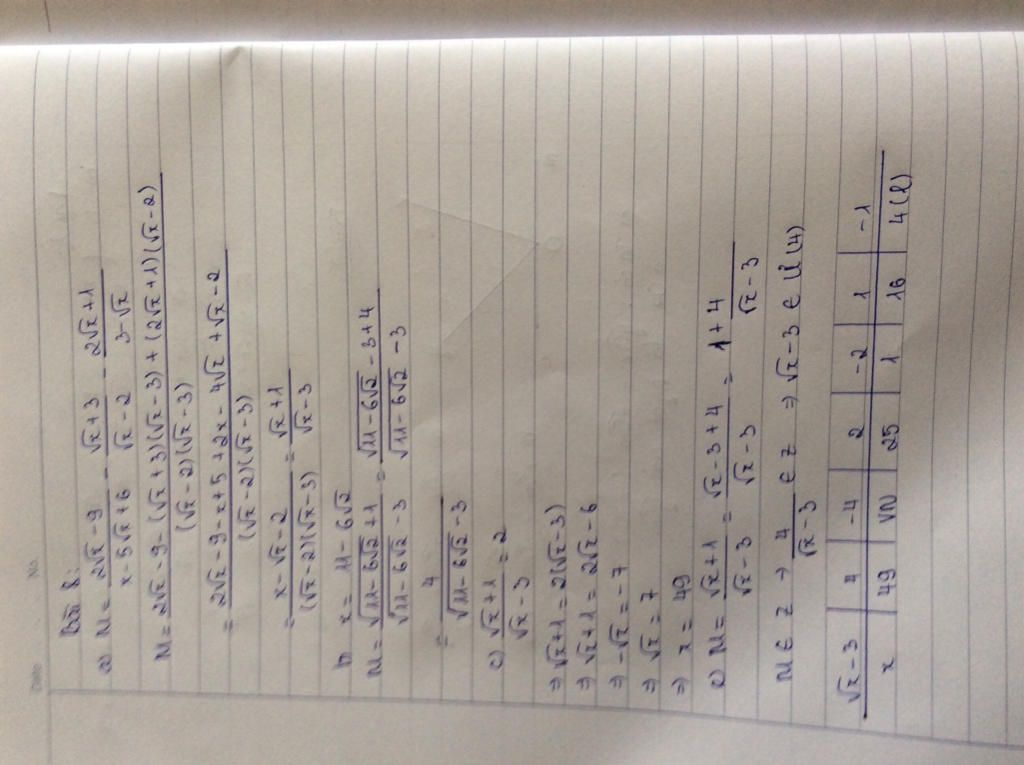 Date No.
Bài 8:
a) M = \frac{2√x - 9}{x - 5√x + 6} - \frac{√x + 3}{√x - 2} - \frac{2√x + 1}{3 - √x}
M = \frac{2√x - 9 - (√x + 3)(√x - 3) + (2√x + 1)(√x - 2)}{(√x - 2)(√x - 3)}
= \frac{2√x - 9 - x + 5 + 2x - 4√x + √x - 2}{(√x - 2)(√x - 3)}
= \frac{x - √x - 2}{(√x - 2)(√x - 3)} = \frac{√x + 1}{√x - 3}
b x = 11 - 6√2
M = \frac{√11 - 6√2 + 1}{√11 - 6√2 - 3} = \frac{√11 - 6√2 - 3 + 4}{√11 - 6√2 - 3}
= \frac{4}{√11 - 6√2 - 3}
c) \frac{√x + 1}{√x - 3} = 2
⇒ √x + 1 = 2(√x - 3)
⇒ √x + 1 = 2√x - 6
⇒ -√x = -7
⇒ √x = 7
⇒ x = 49
e) M = \frac{√x + 1}{√x - 3} = \frac{√x - 3 + 4}{√x - 3} = \frac{1 + 4}{√x - 3}
M ∈ Z → \frac{4}{√x - 3} ∈ Z ⇒ √x - 3 ∈ Ư(4)
√x - 3 | 4 | -4 | 2 | -2 | 1 | -1
x | 49 | VN | 25 | 1 | 16 | 4 (l)